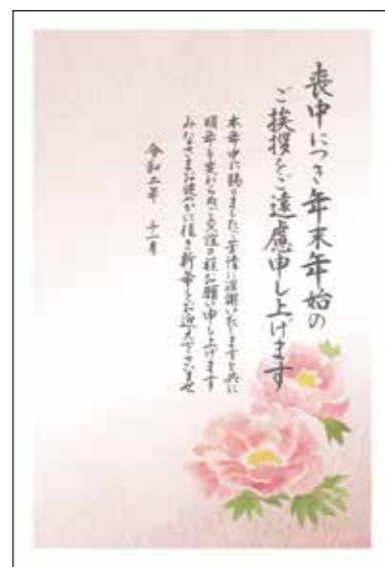 喪中につき年末年始の
ご挨拶をご遠慮申し上げます
本年中に賜りましたご芳情に深謝いたしますと共に
明年も変わらぬご交誼の程お願い申し上げます
みなさまお健やかに佳き新年をお迎え下さいませ
令和二年 十一月